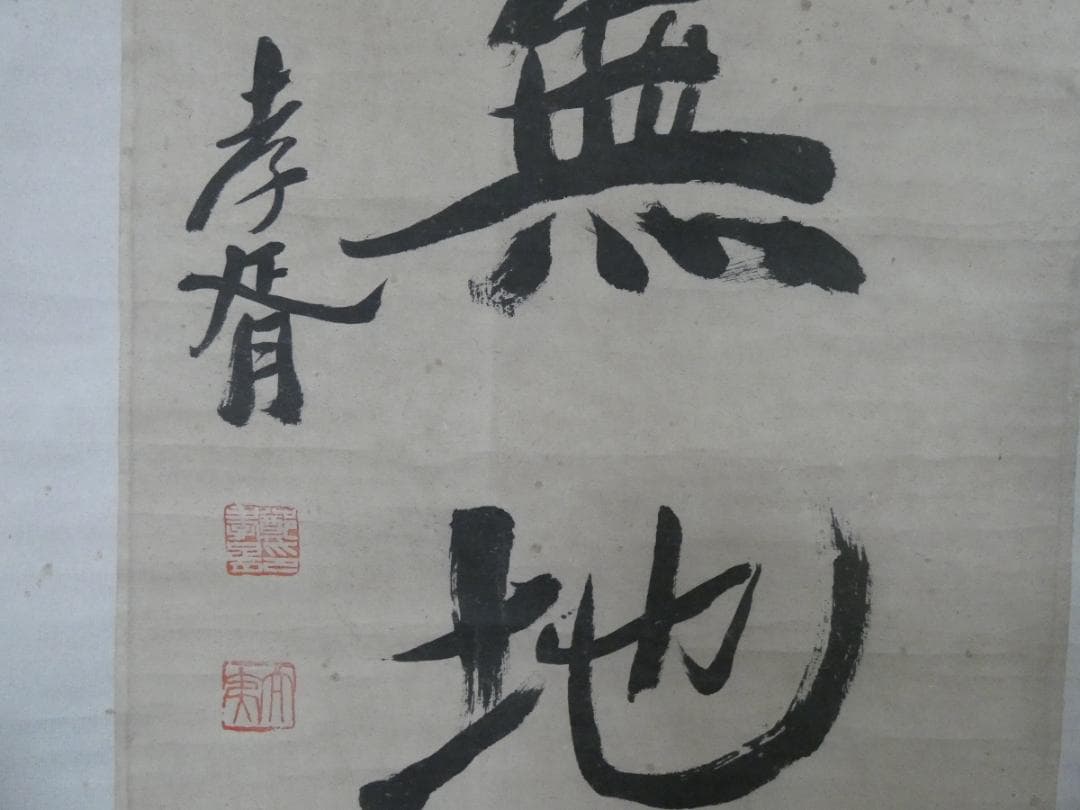 無地
孝胥